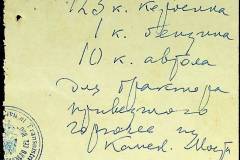 123 к. керосина
1 к. бензина
10 к. автола
для трактора
привезного
горючее из
Камен. Моста